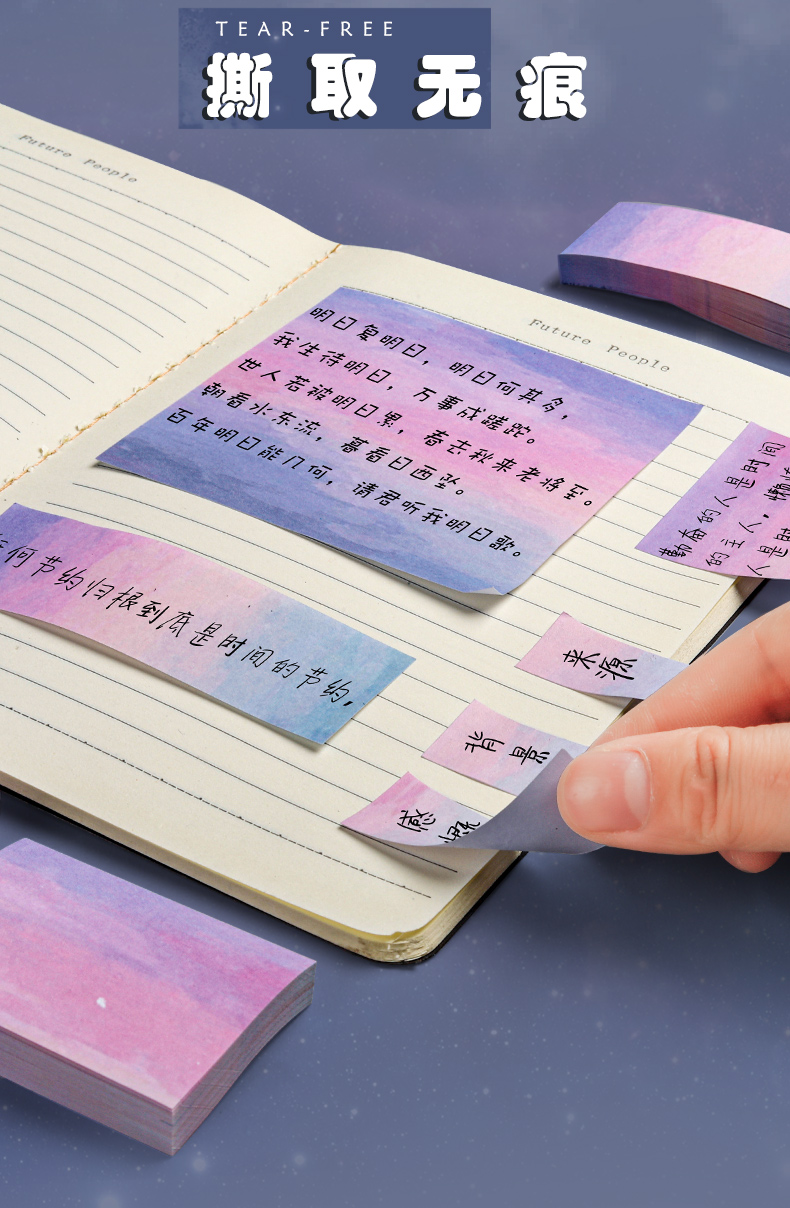 TEAR-FREE
撕取无痕
Future People
Future People
明日复明日，明日何其多，
我生待明日，万事成蹉跎。
世人若被明日累，春去秋来老将至。
朝看水东流，暮看日西坠。
百年明日能几何，请君听我明日歌。
勤奋的人是时间
的主人，懒惰
人是时
何节约归根到底是时间的节约，
来源
背景
感慨